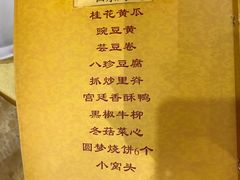 桂花黄瓜
豌豆黄
芸豆卷
八珍豆腐
抓炒里脊
宫廷香酥鸭
黑椒牛柳
冬菇菜心
圆梦烧饼6个
小窝头